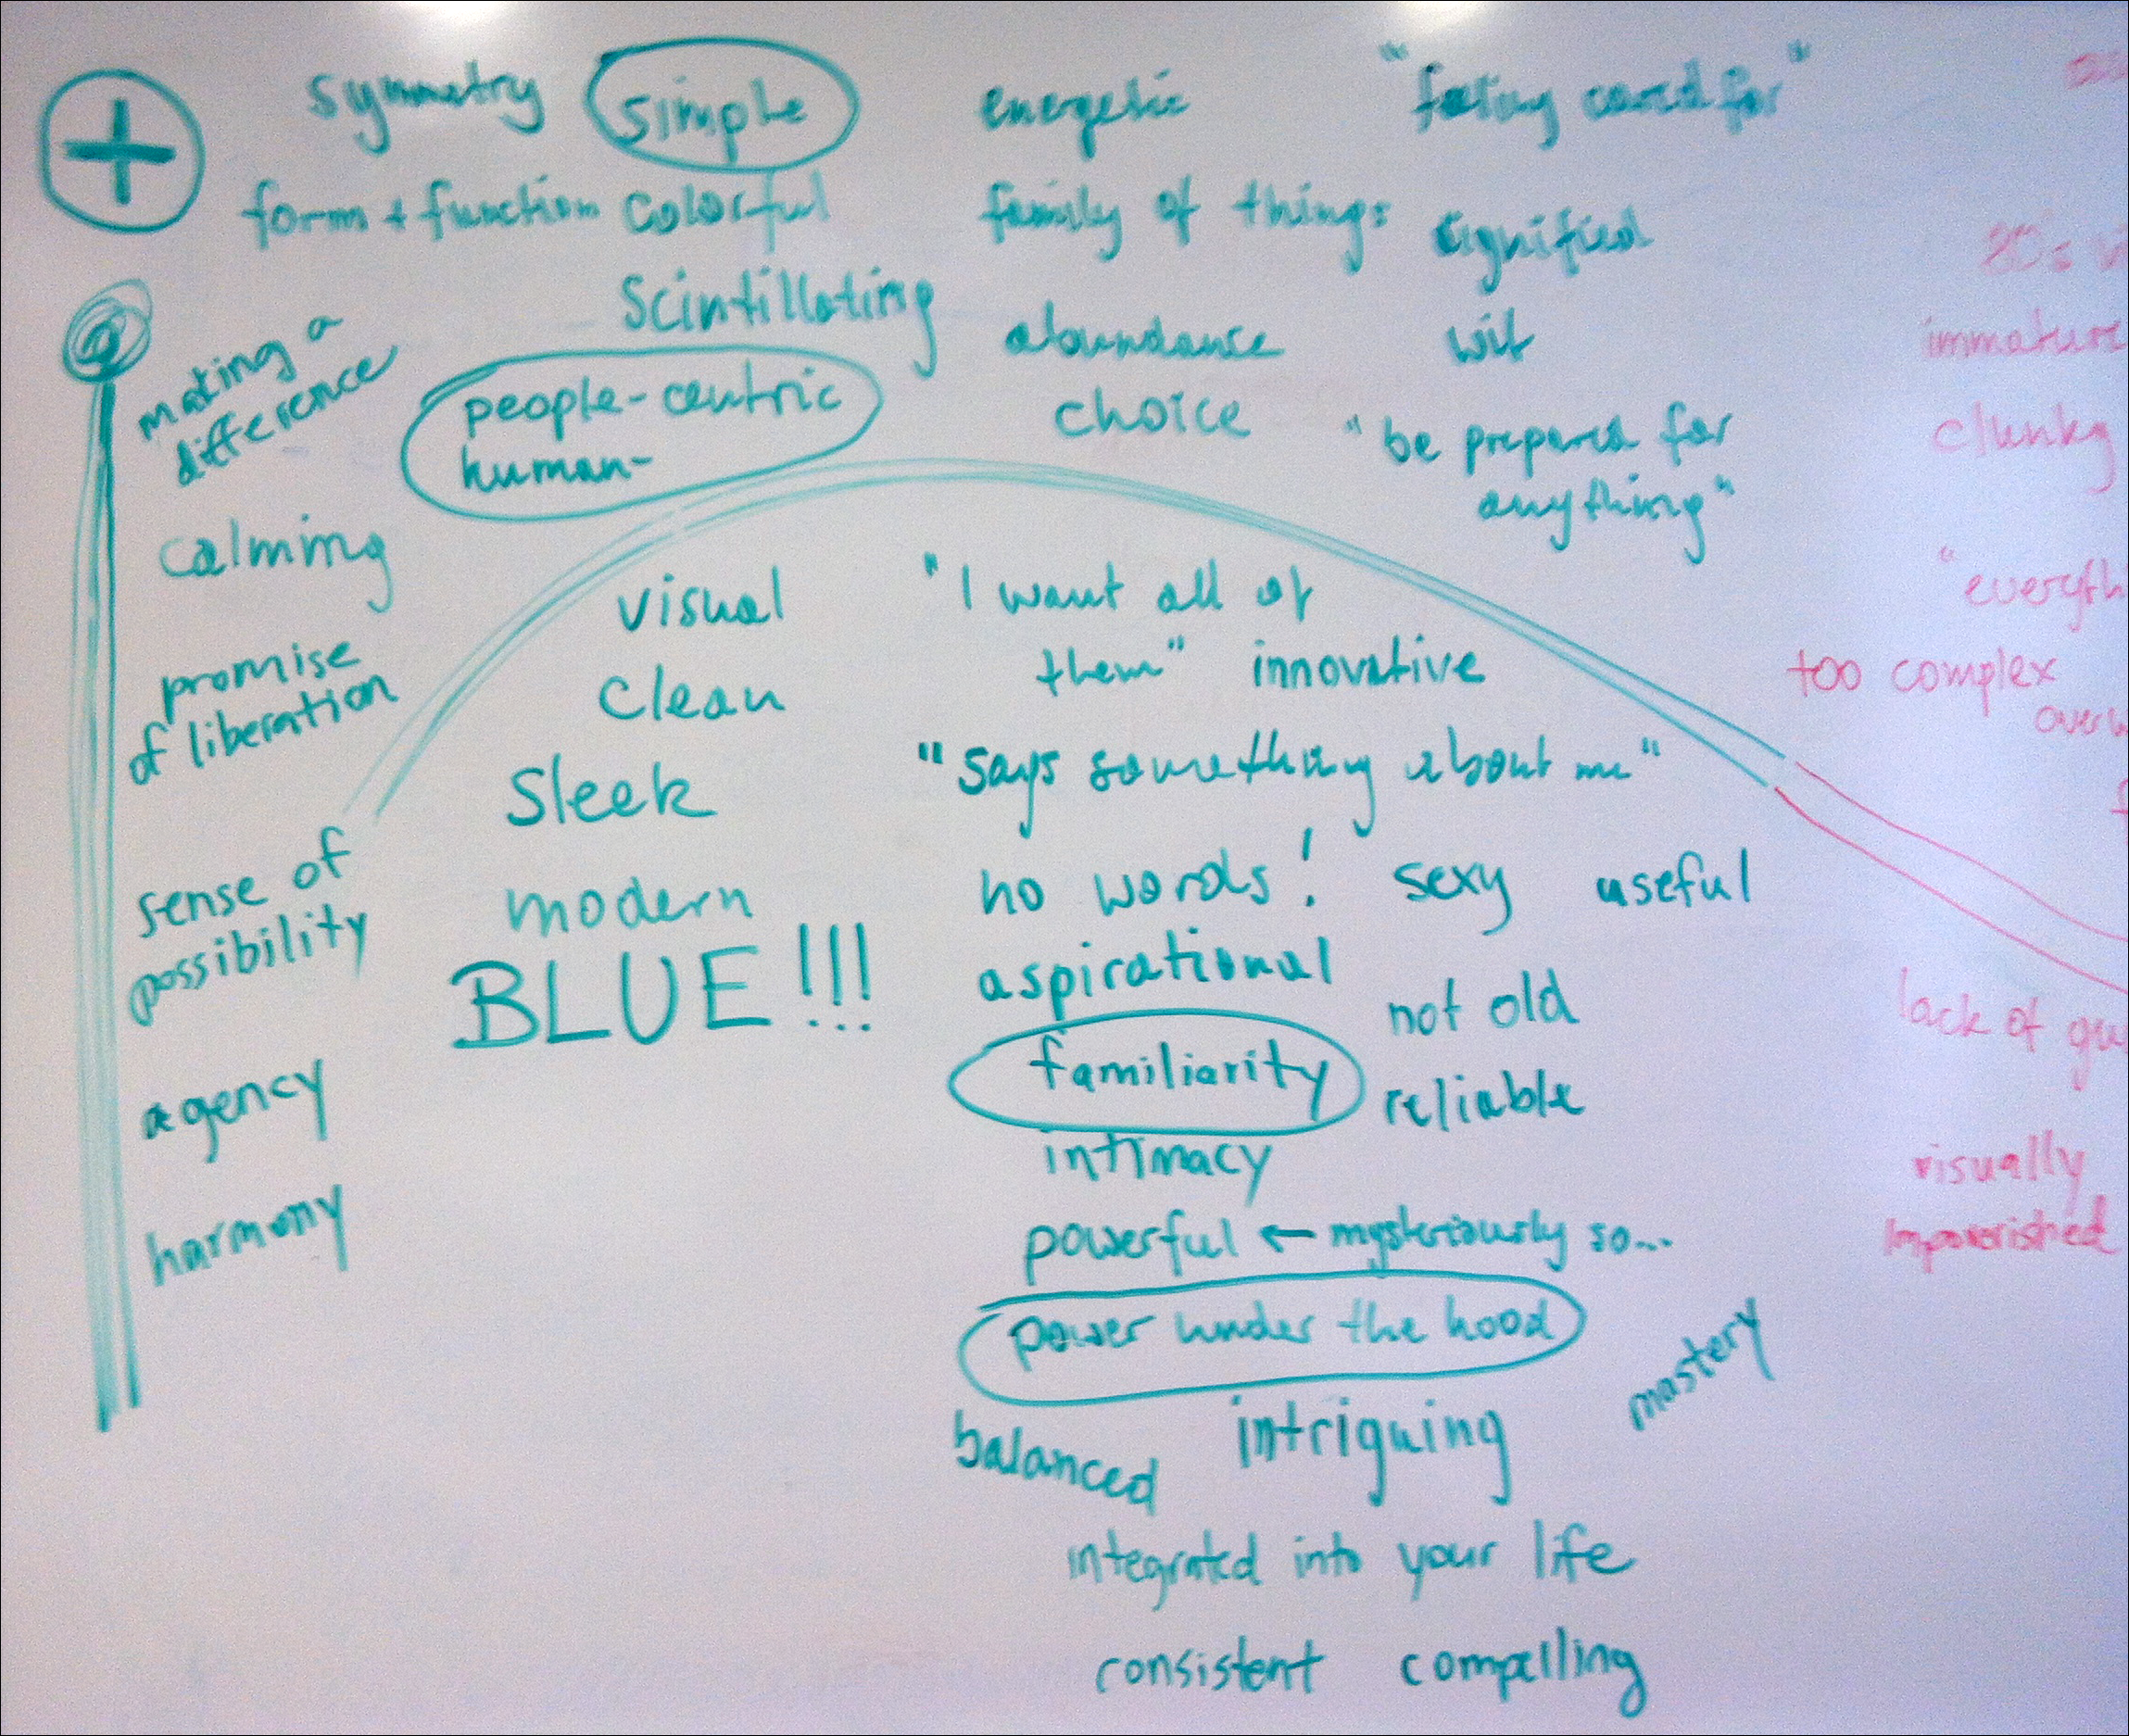 +
symmetry
simple
form + function
colorful
scintillating
people-centric
human-
making a
difference
calming
promise
of liberation
sense of
possibility
agency
harmony
visual
clean
sleek
modern
BLUE!!!
energetic
family of things
abundance
choice
"feeling cared for"
dignified
wit
"be prepared for
anything"
"I want all of
them" innovative
"says something about me"
no words! sexy useful
aspirational
not old
familiarity
reliable
intimacy
powerful ← mysteriously so...
power under the hood
mastery
balanced
intriguing
integrated into your life
consistent compelling
80s
immature
clunky
too complex
lack of
visually
impoverished